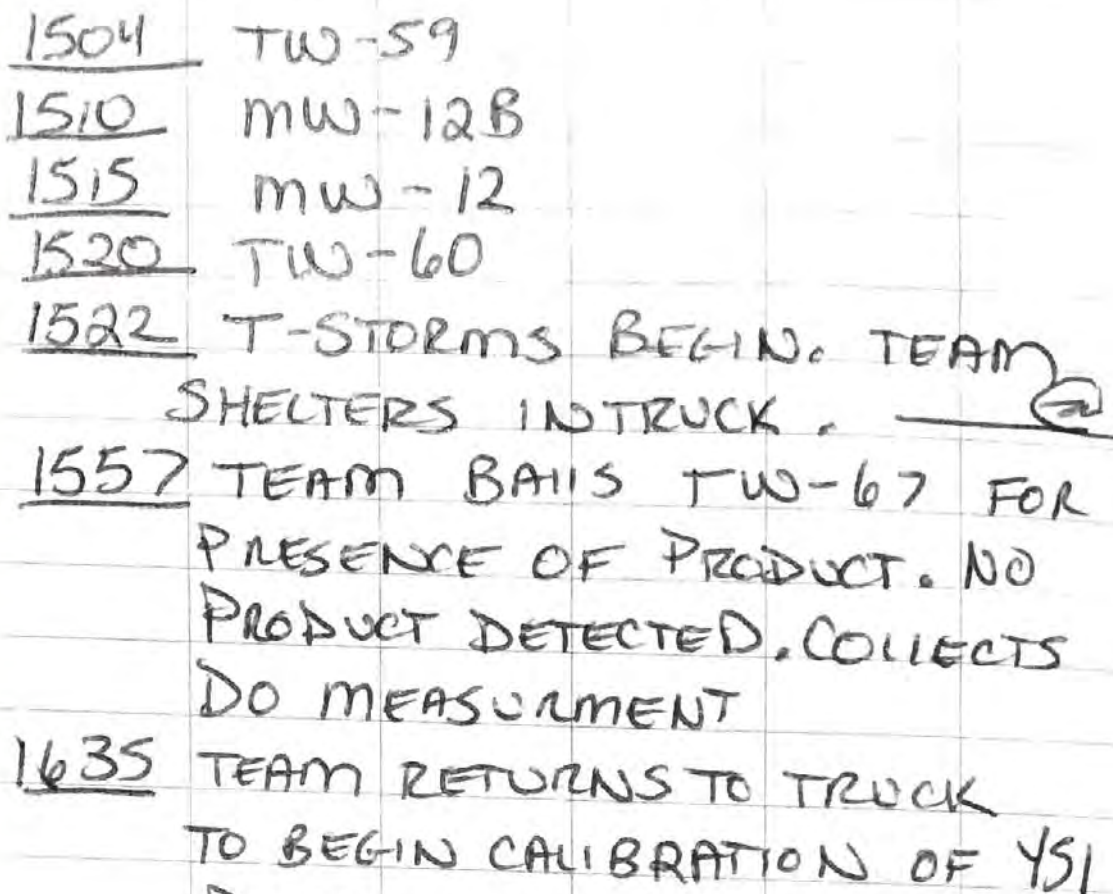 1504 TW-59
1510 MW-12B
1515 MW-12
1520 TW-60
1522 T-STORMS BEGIN. TEAM
SHELTERS IN TRUCK.
1557 TEAM BAILS TW-67 FOR
PRESENCE OF PRODUCT. NO
PRODUCT DETECTED. COLLECTS
DO MEASURMENT
1635 TEAM RETURNS TO TRUCK
TO BEGIN CALIBRATION OF YSI